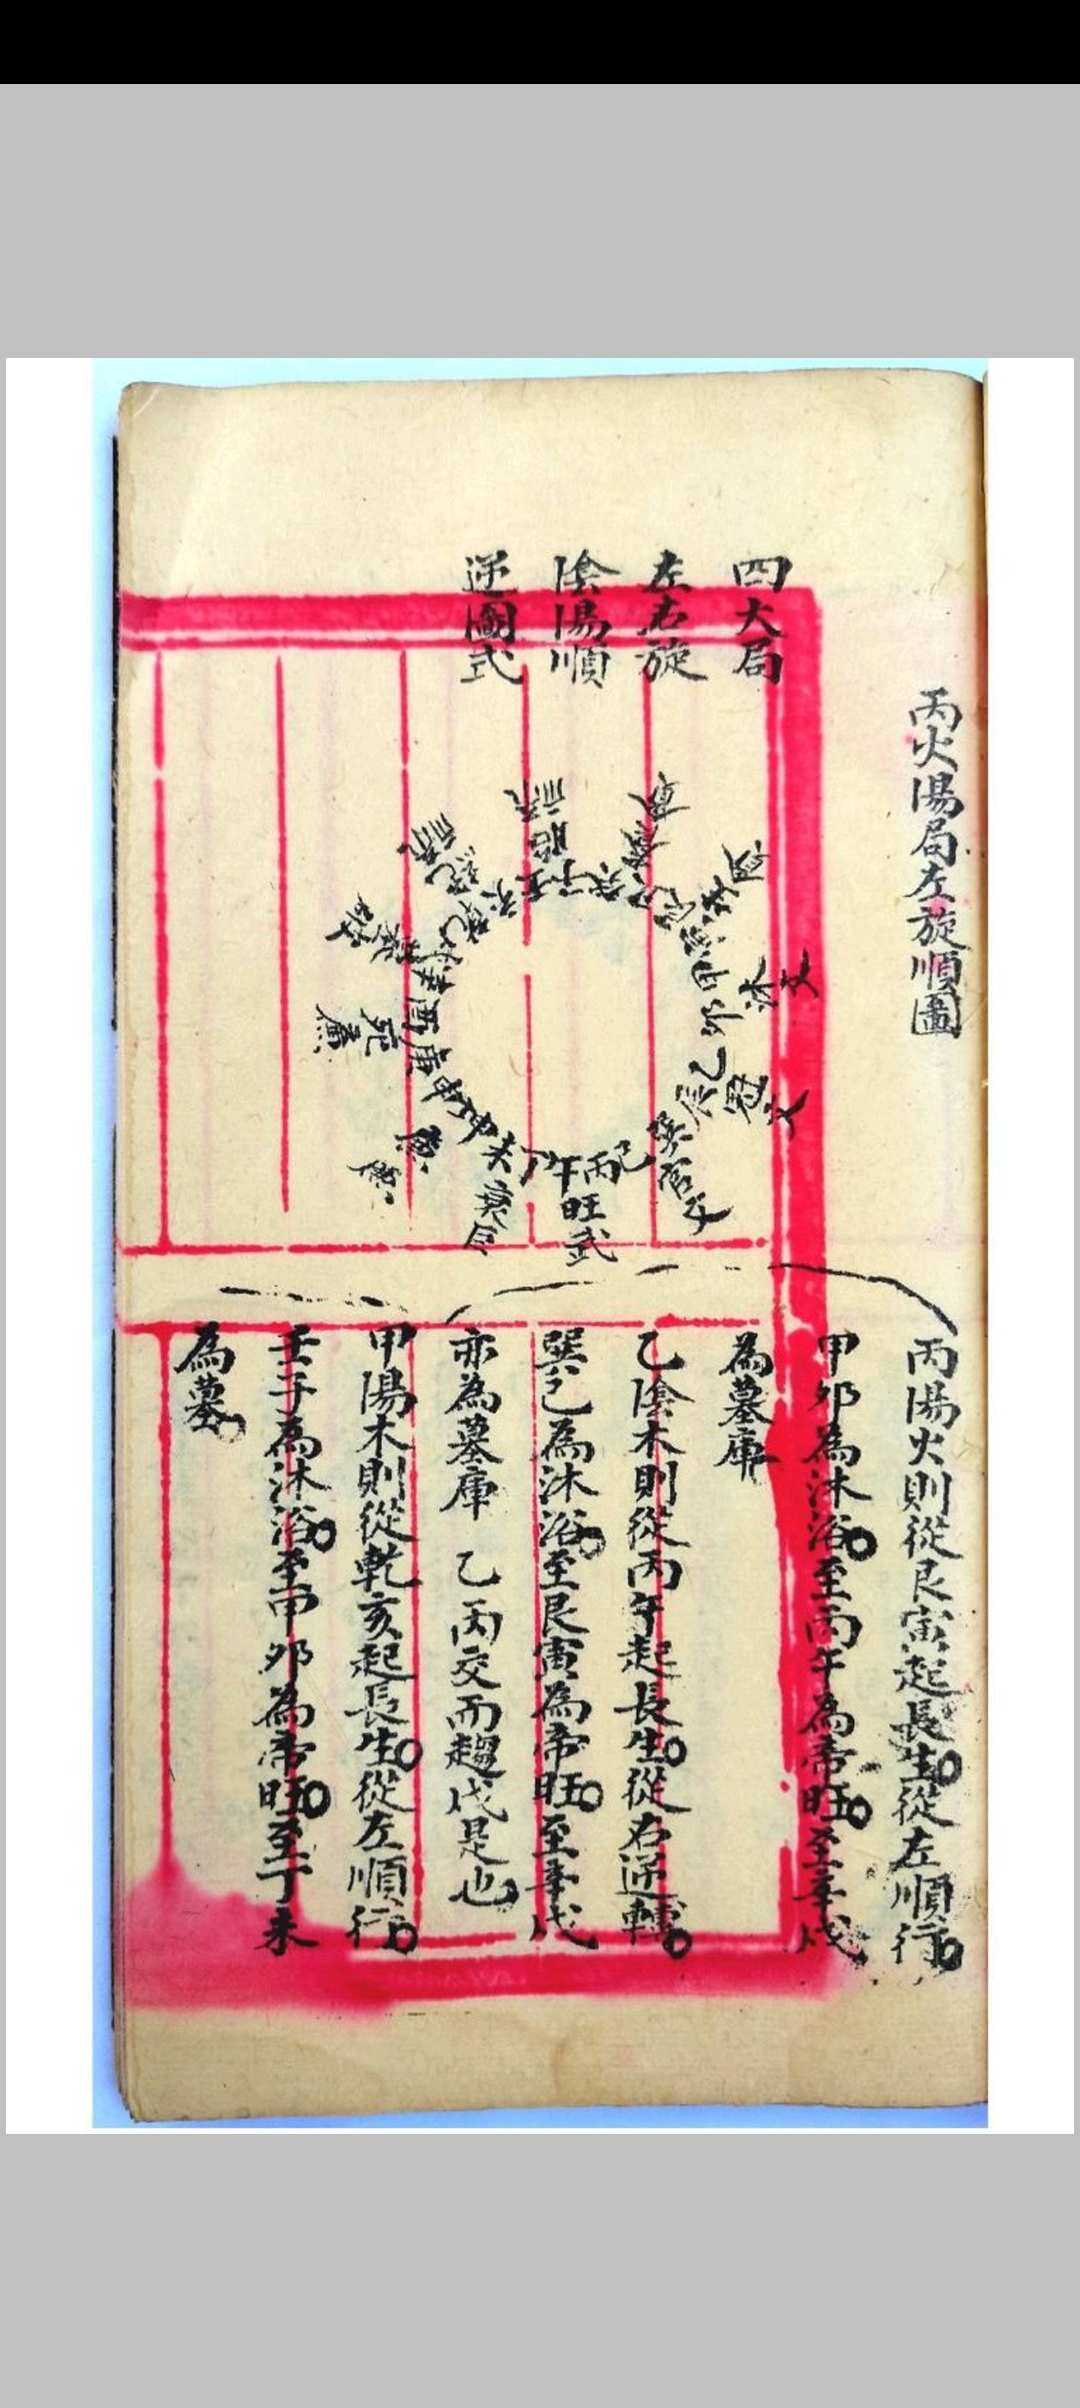 丙火陽局左旋順圖
四大局
左右旋
陰陽順
逆圖式
丙陽火則從艮寅起長生從左順行
甲卯為沐浴至丙午為帝旺至辛戌
為墓庫
乙陰木則從丙午起長生從右逆轉
巽巳為沐浴至艮寅為帝旺至辛戌
亦為墓庫 乙丙交而趨戌是也
甲陽木則從乾亥起長生從左順行
壬子為沐浴至甲卯為帝旺至丁未
為墓
丙午丁未
旺武
衰
巽巳
官
乙辰
冠文
甲卯
沐文
庚酉
死廉
壬子
胎